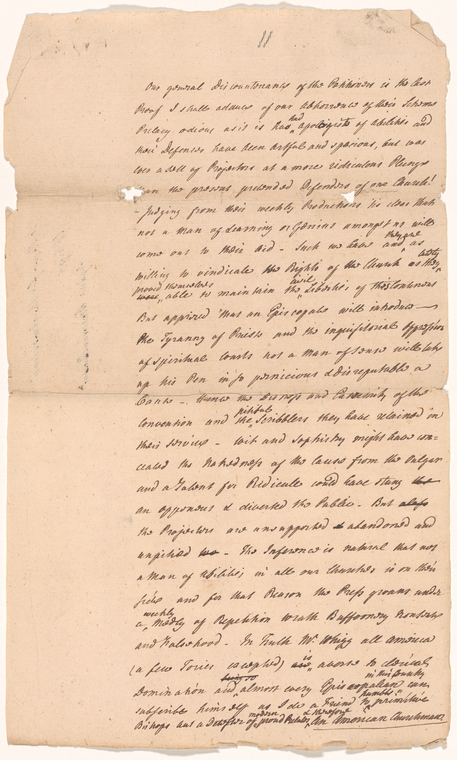 11
Our general discountenance of the Petitioners is the last
Proof I shall adduce of our abhorrence of their Scheme
Prelacy odious as it is has had apologists of abilities and
their Defences have been artful and specious, but was
ever a sett of Projectors at a more ridiculous Plunge
than the present pretended Defenders of our Church!
– Judging from their weekly Productions tis clear that
not a Man of Learning or Genius amongst us will
come out to their Aid – Such we have and they are as
willing to vindicate the Rights of the Church as they lately
proved themselves able to maintain the civil Liberties of the
But apprized that an Episcopate will introduce
the Tyranny of Priests and the inquisitorial Oppression
of spiritual Courts not a Man of Sense will take
up his Pen in so pernicious & disreputable a
Cause – Hence the Distress and of the
Convention and the pitiful Scribblers they have retained in
their service – Wit and Sophistry might have con-
cealed the Nakedness of the Cause from the Vulgar
and a Talent for Ridicule could have stung
an opponent & diverted the Public – But
the Projectors are unsupported abandoned and
unpitied – The Inference is natural that not
a Man of Abilities in all our Churches is on their
side and for that Reason the Press groans under
a weekly Medly of Repetition Wrath Buffoonry
and Falsehood – In Truth Mr. Whigg all America
(a few Tories excepted) is averse to clerical
Domination and almost every Episcopalian in this Country can
subscribe himself as I do a Friend to humble primitive
Bishops but a of modern proud Prelates & therefore
An American Churchman